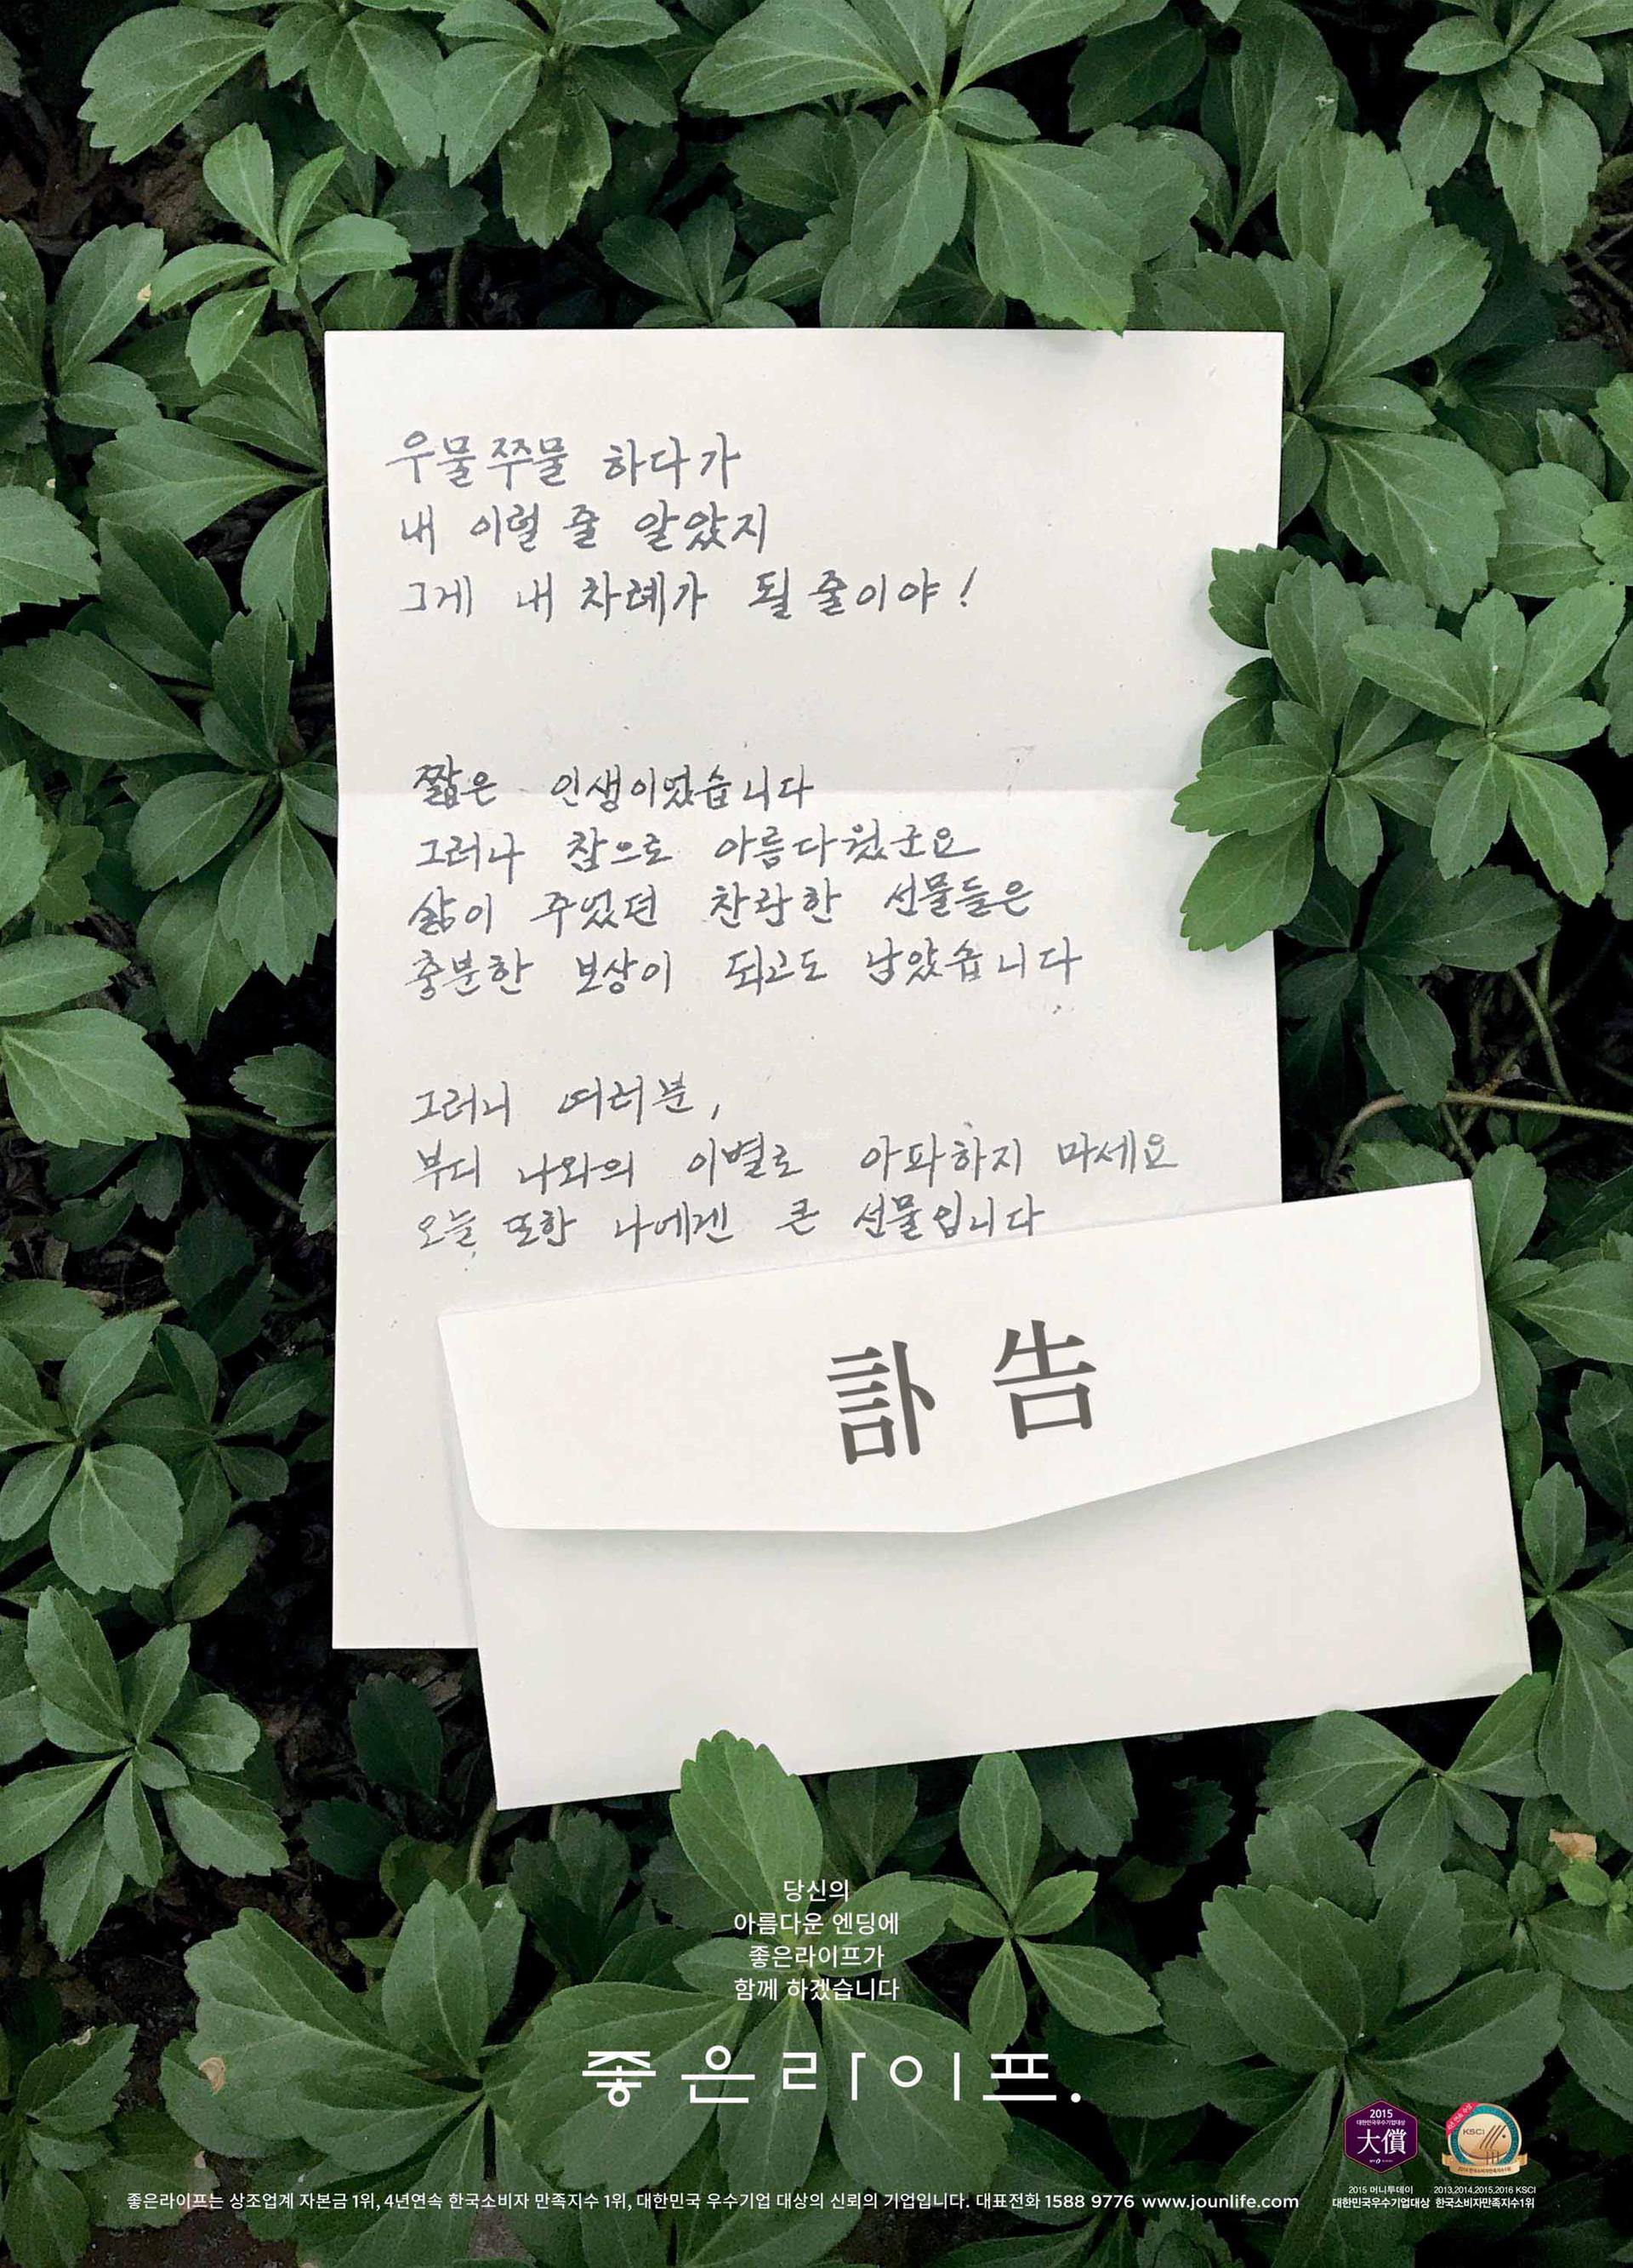 우물쭈물 하다가
내 이럴 줄 알았지
그게 내 차례가 될 줄이야!
짧은 인생이었습니다
그러나 참으로 아름다웠군요
삶이 주었던 찬란한 선물들은
충분한 보상이 되고도 남았습니다
그러니 여러분,
부디 나와의 이별로 아파하지 마세요
오늘 또한 나에겐 큰 선물입니다
訃告
당신의
아름다운 엔딩에
좋은라이프가
함께 하겠습니다
좋은라이프.
2015
대한민국우수기업대상
大償
KSCI
좋은라이프는 상조업계 자본금 1위, 4년연속 한국소비자 만족지수 1위, 대한민국 우수기업 대상의 신뢰의 기업입니다. 대표전화 1588 9776 www.jounlife.com
2015 머니투데이
대한민국우수기업대상
2013,2014,2015,2016 KSCI
한국소비자만족지수1위